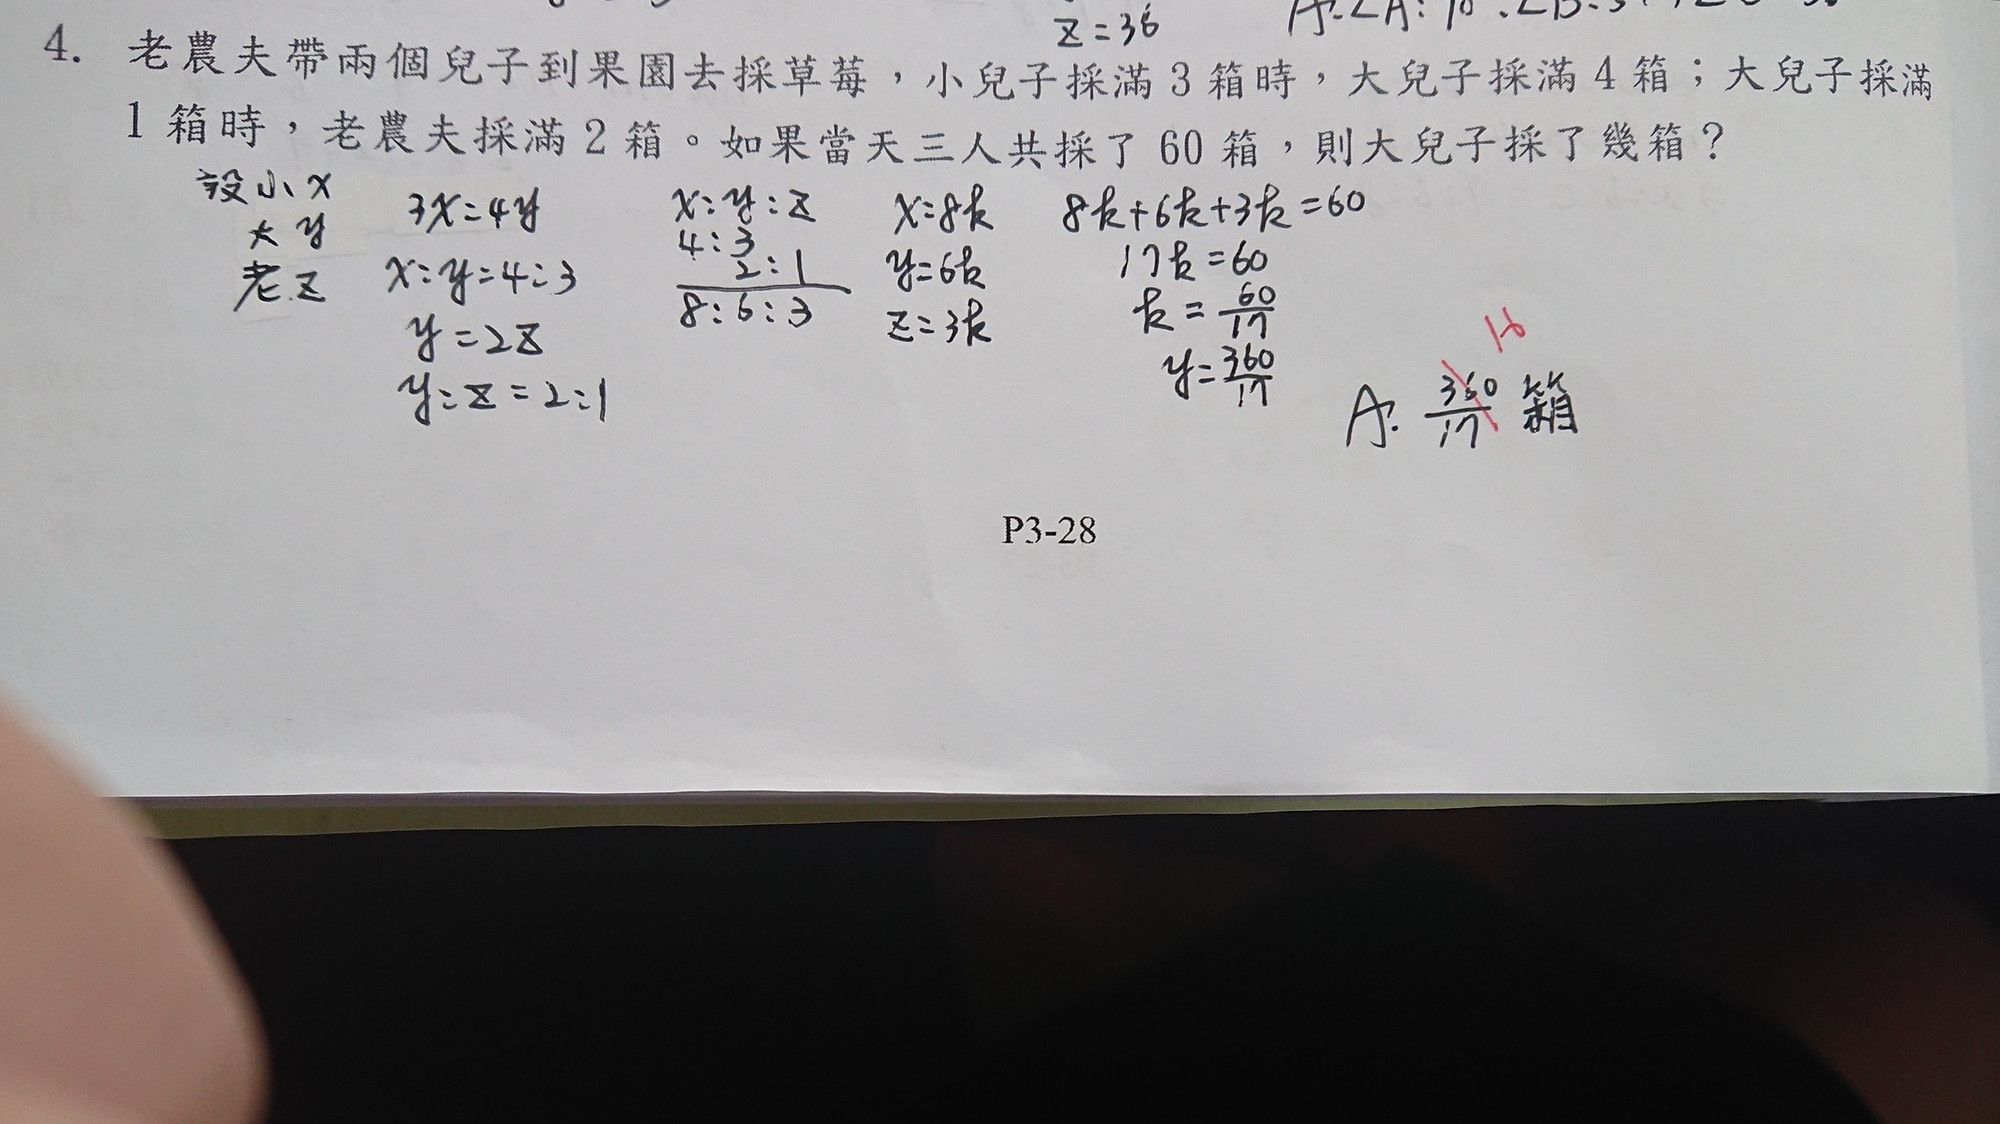 z=36
4. 老農夫帶兩個兒子到果園去採草莓，小兒子採滿 3 箱時，大兒子採滿 4 箱；大兒子採滿
1 箱時，老農夫採滿 2 箱。如果當天三人共採了 60 箱，則大兒子採了幾箱？
設小 x
大 y
老 z
3x=4y
x:y=4:3
y=2z
y:z=2:1
x:y:z
4:3
2:1
8:6:3
x=8k
y=6k
z=3k
8k+6k+3k=60
17k=60
k=60/17
y=360/17
16
A: 360/17 箱
P3-28